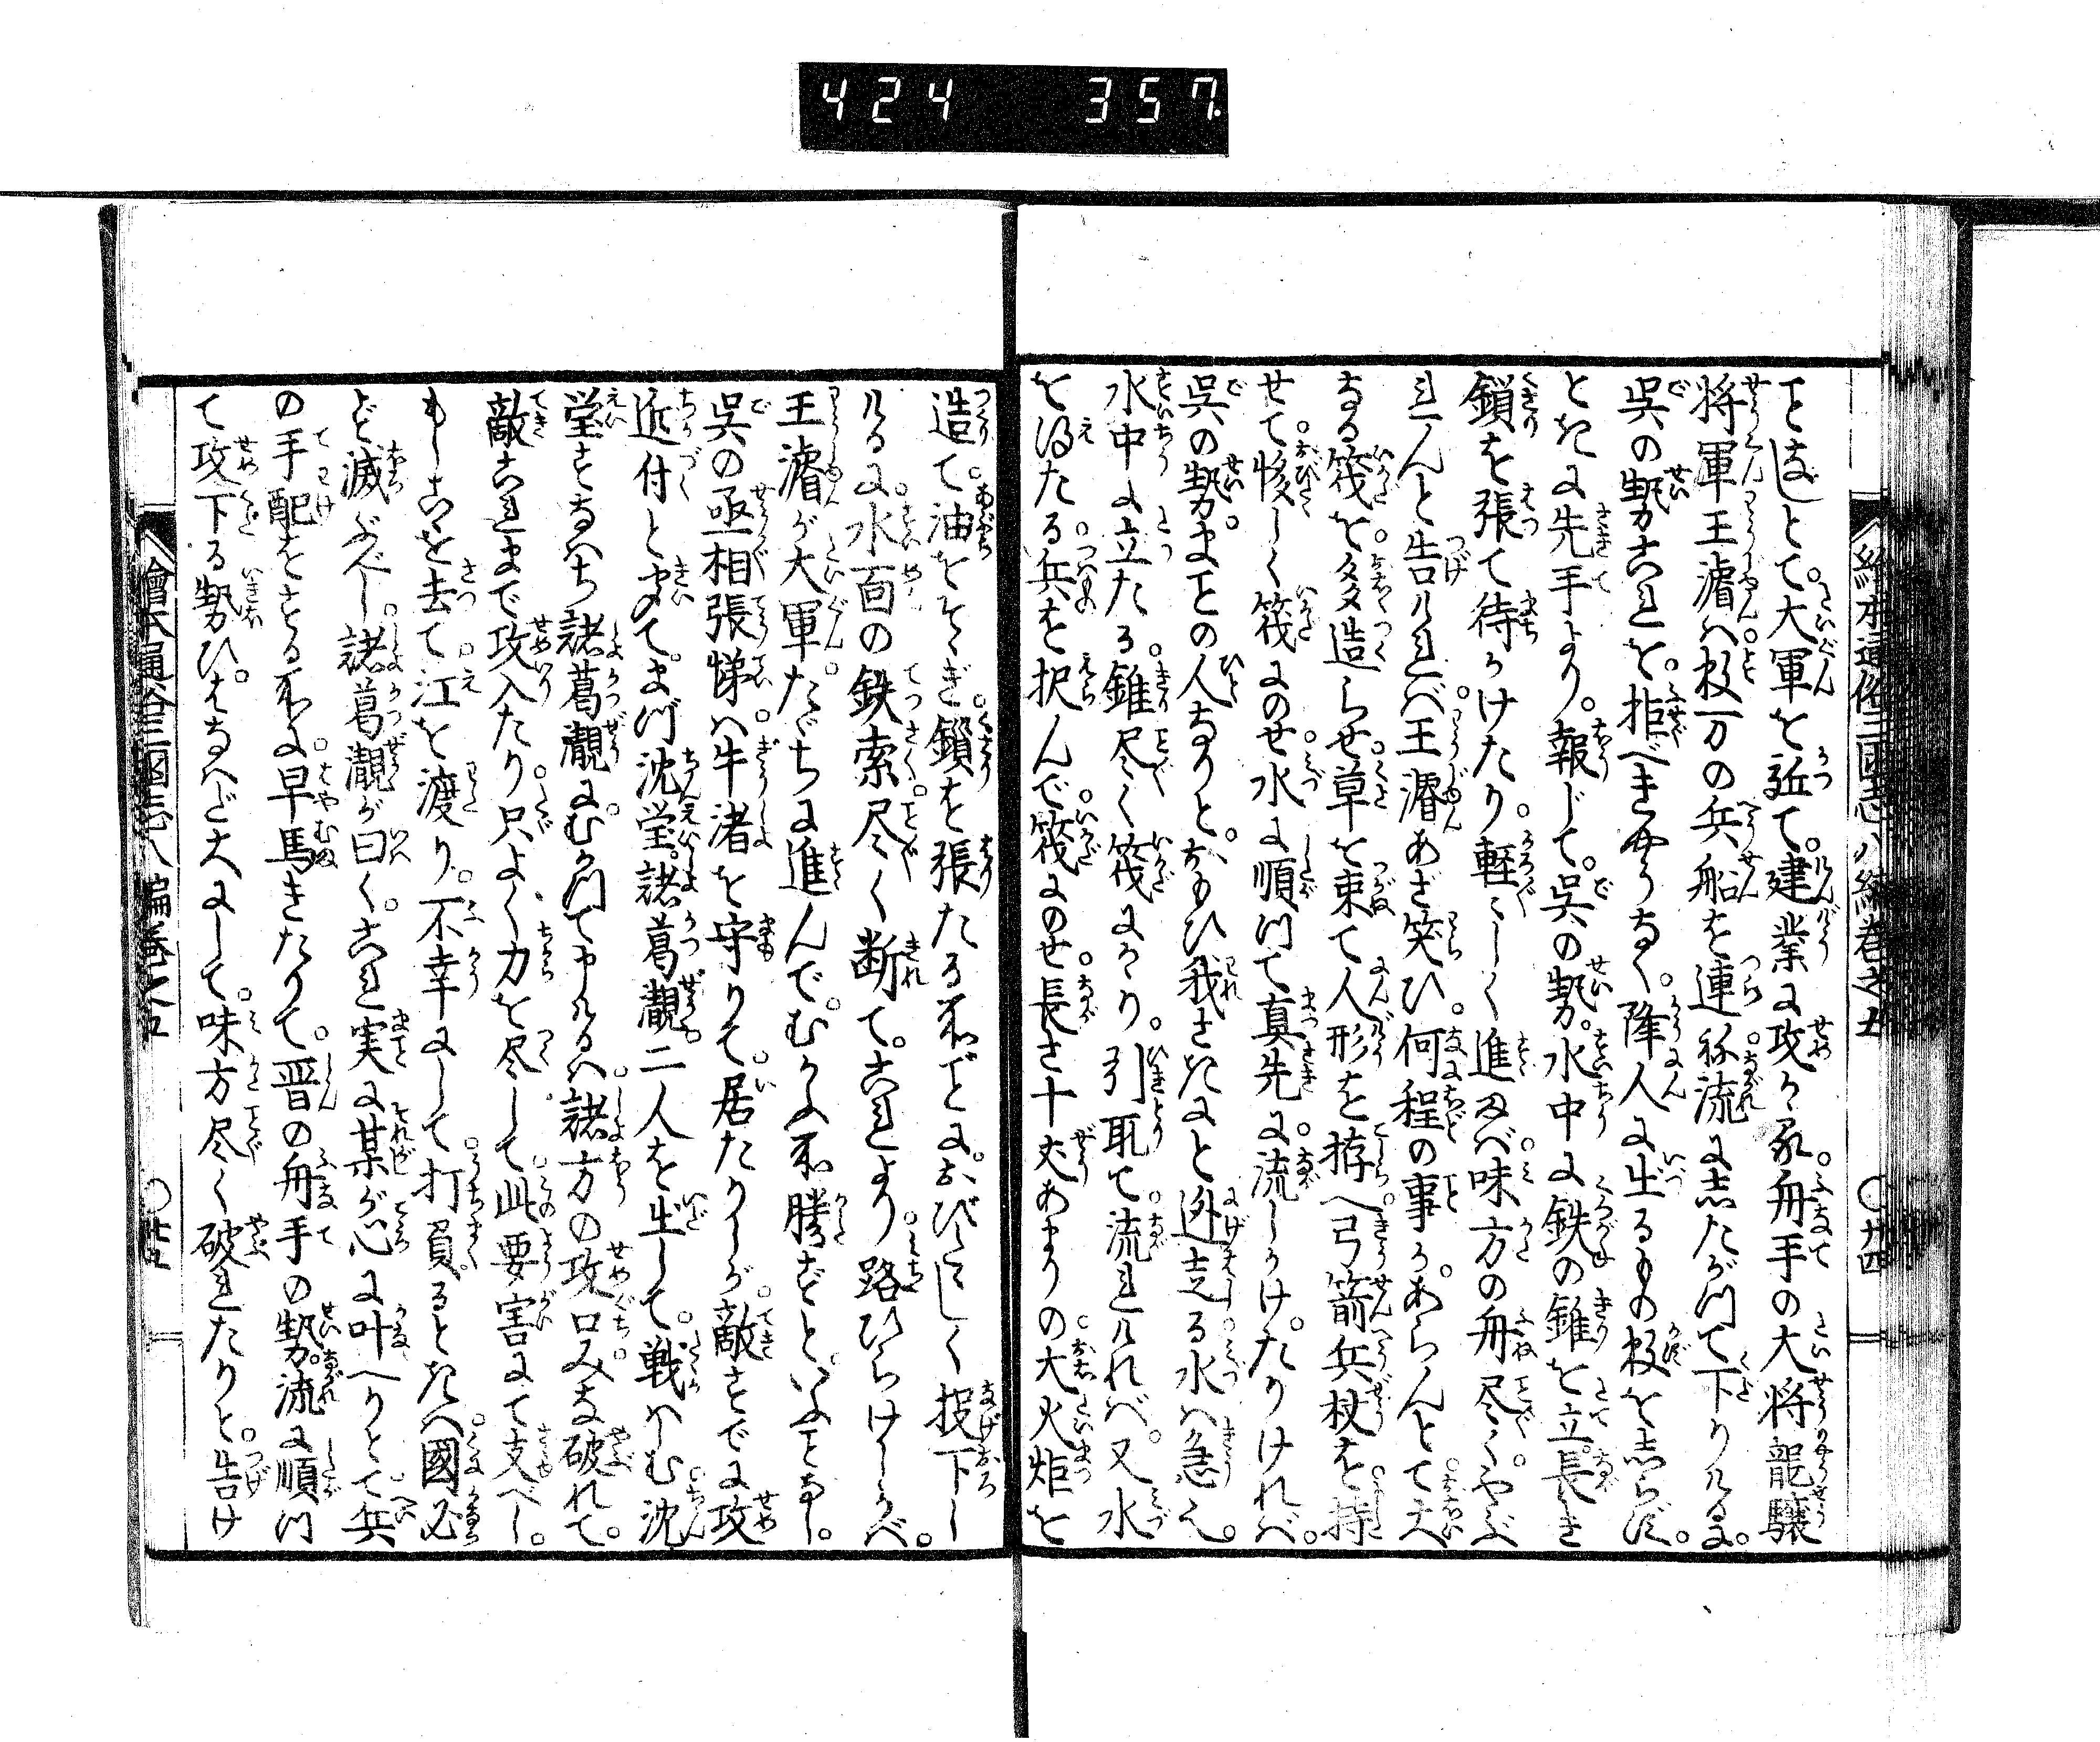 424 357
繪本通俗三國志八編巻之五 ○廿四
てまじとて。大軍を近て。建業に攻かゝる舟手の大将龍驤
将軍王濬ハ数万の兵船を連ね流に志たがつて下りけるに。
呉の勢これを拒べきやうなく。降人に出るもの数を志らず。
ときに先手より。報じて。呉の勢。水中に鉄の錐を立。長き
鎖を張て待かけたり。軽々しく進まば味方の舟尽くやぶ
れんと告ければ王濬あざ笑ひ。何程の事かあらんとて大
なる筏を多造らせ草を束て人形を拵へ弓箭兵杖を持
せて。夥しく筏にのせ水に順つて真先に流しかけたりければ。
呉の勢まことの人なりと。おもひ我さきにと迯走る水ハ急也。
水中に立たる錐尽く筏にかゝり。引取て流れければ。又水
を得たる兵を択んで筏にのせ。長さ十丈あまりの大火炬を
造て。油をそゝぎ。鎖を張たる所ごとに。おびたゞしく投下し
けるに。水面の鉄索尽く断て。これより路ひらけしかば。
王濬が大軍。たゞちに進んで。むかふ所勝ずといふことなし。
呉の丞相張悌ハ牛渚を守りて。居たりしが。敵すでに攻
近付と聞て。まづ沈瑩。諸葛靚二人を出して。戦ハしむ沈
瑩すなハち諸葛靚にむかつて申けるハ諸方の攻口みな破れて。
敵これまで攻入たり只よく力を尽して此要害にて支べし。
もしこゝを去て江を渡り。不幸にして打負るときハ國必
ず滅ぶべし。諸葛靚が曰く。これ実に某が心に叶へりとて兵
の手配をする所に早馬きたりて。晋の舟手の勢。流に順つ
て攻下る勢ひ。はなハだ大にして。味方尽く破れたりと。告け
繪本通俗三國志八編巻之五 ○廿五